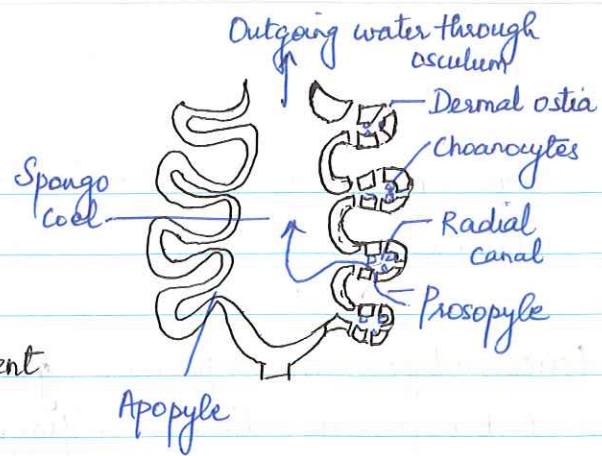 Outgoing water through
osculum
Dermal ostia
Choanocytes
Spongo
coel
Radial
canal
Prosopyle
ent
Apopyle